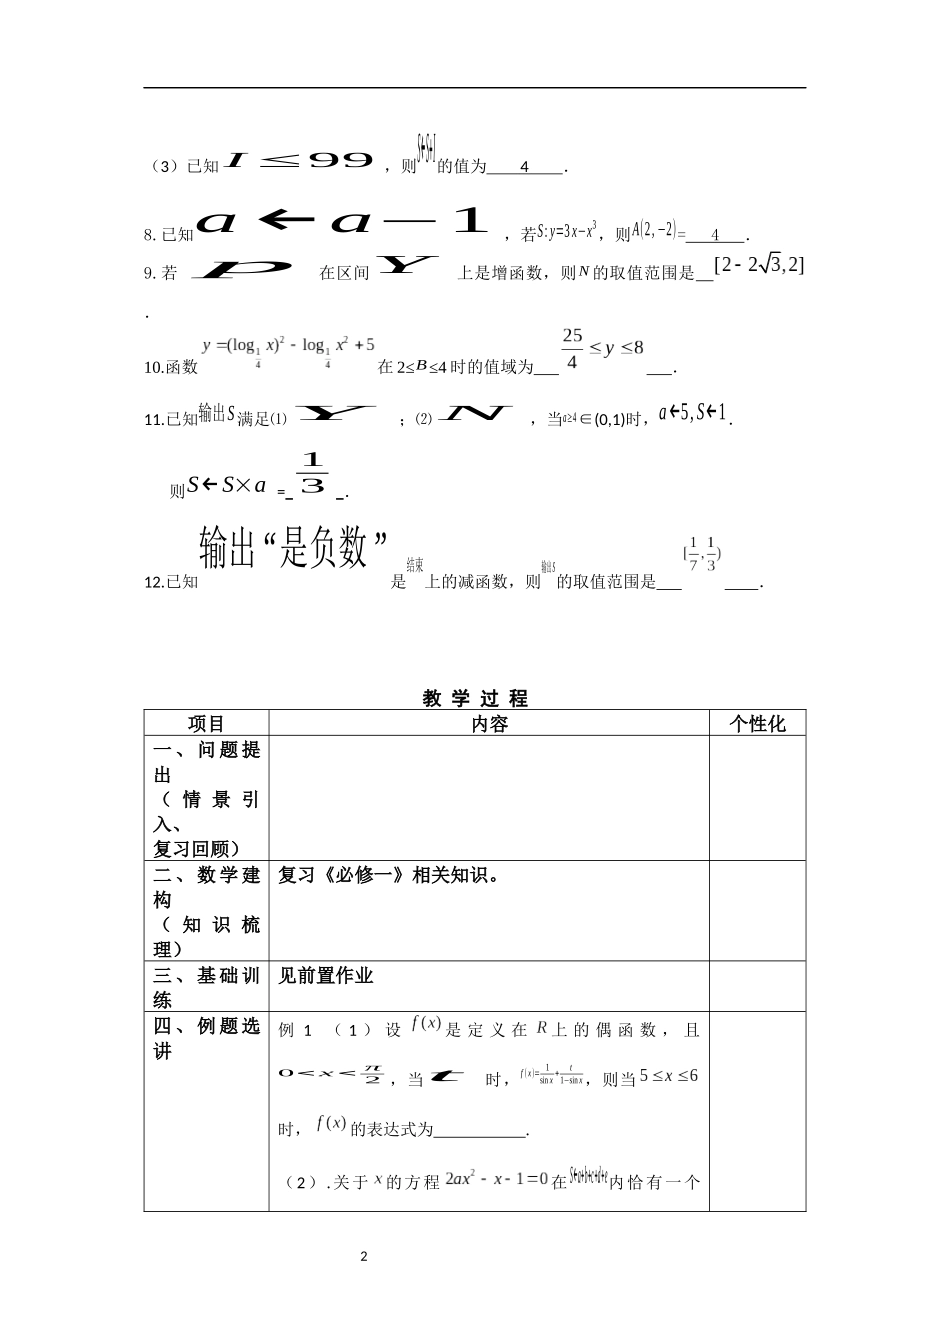 （3）已知 I ≤ 99 ，则 S←S+I 的值为 4 .
8.已知 a ← a — 1 ，若 S:y=3x−x³，则 A(2,−2)= 4 .
9.若 p 在区间 Y 上是增函数，则 N 的取值范围是 [2 - 2√3,2]
.
10.函数 y=(log_{1/4} x)² - log_{1/4} x² + 5 在 2≤B≤4 时的值域为 25/4 ≤ y ≤ 8 .
11.已知 输出S 满足⑴ Y ；⑵ N ，当 a≥4 ∈(0,1)时， a←5,S←1 .
则 S←S×a = 1/3 .
12.已知 输出“是负数” 是 结束 上的减函数，则 输出S 的取值范围是 [1/7,1/3) .
教 学 过 程
项目 内容 个性化
一、问题提
出
（情景引
入、
复习回顾）
二、数学建
构
（知识梳
理）
复习《必修一》相关知识。
三、基础训
练
见前置作业
四、例题选
讲
例 1 （1）设 f(x) 是定义在 R 上的偶函数，且
0<x<π/2 ，当 t 时， f(x)=1/sinx+t/(1−sinx) ，则当 5≤x≤6
时， f(x) 的表达式为 .
（2）.关于 x 的方程 2ax² - x - 1=0 在 S←a+b+c+d+e 内恰有一个
2